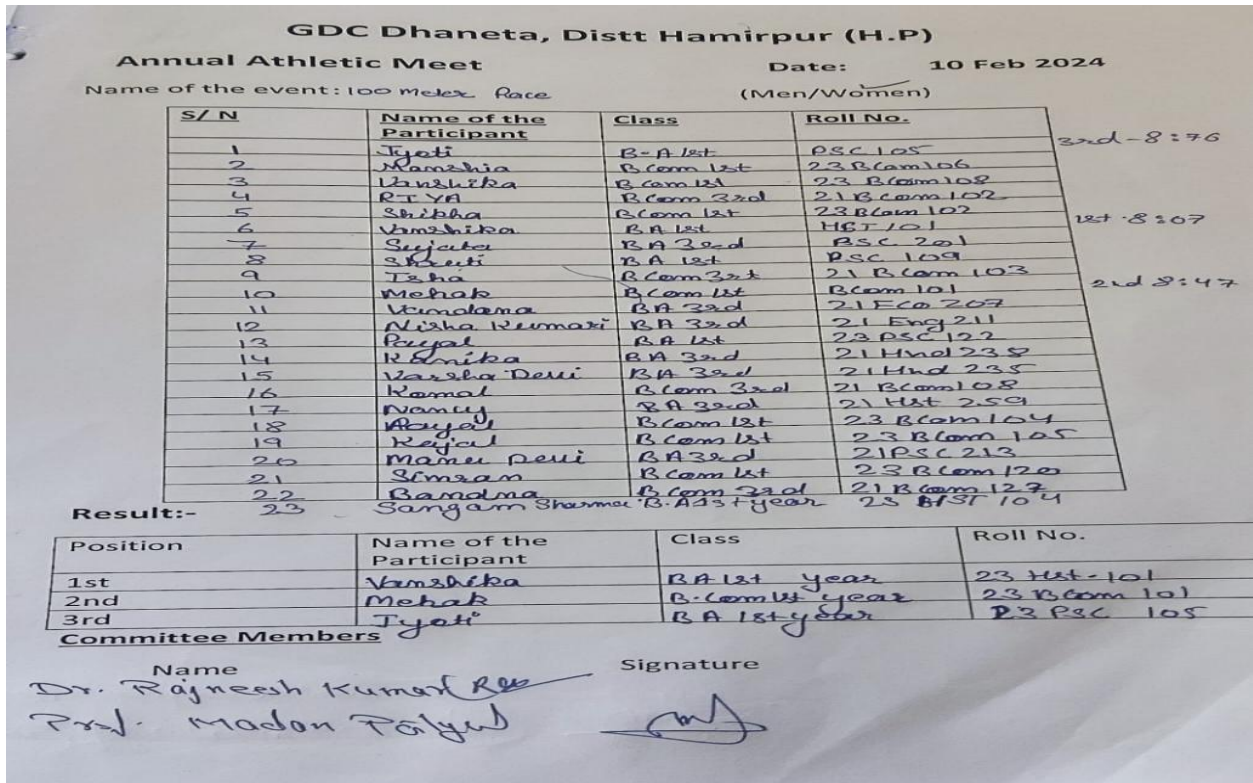 GDC Dhaneta, Distt Hamirpur (H.P)
Annual Athletic Meet Date: 10 Feb 2024
Name of the event: 100 meter Race (Men/Women)
S/ N Name of the Participant Class Roll No.
1 Jyoti B-A 1st PSC 105 3rd-8:76
2 Manshia B com 1st 23 B Com 106
3 Vanshika B com 1st 23 B Com 108
4 RIYA B Com 3rd 21 B Com 102
5 Shibha B Com 1st 23 B Com 102
6 Vanshika BA 1st HST 101 1st-8:07
7 Sujata BA 3rd PSC 201
8 Shruti BA 1st PSC 109
9 Isha B Com 3rd 21 B Com 103
10 Mehak B Com 1st B Com 101 2nd 8:47
11 Vandana BA 3rd 21 Eco 207
12 Nisha Kumari BA 3rd 21 Eng 211
13 Payal BA 1st 23 PSC 122
14 Kanika BA 3rd 21 Hnd 238
15 Varsha Devi BA 3rd 21 Hnd 235
16 Komal B Com 3rd 21 B Com 108
17 Nancy BA 3rd 21 Hst 259
18 Payal B Com 1st 23 B Com 104
19 Kajal B Com 1st 23 B Com 105
20 Devi BA 3rd 21 PSC 213
21 Simran B Com 1st 23 B Com 120
22 Bandna B Com 3rd 21 B Com 127
23 Sangam Sharma B.A 1st year 104
Result:-
Position Name of the Participant Class Roll No.
1st Vanshika BA 1st year 23 Hst-101
2nd Mehak B.Com 1st year 23 B Com 101
3rd Jyoti BA 1st year 23 PSC 105
Committee Members
Name Signature
Dr. Rajneesh Kumar
Prof. Madan